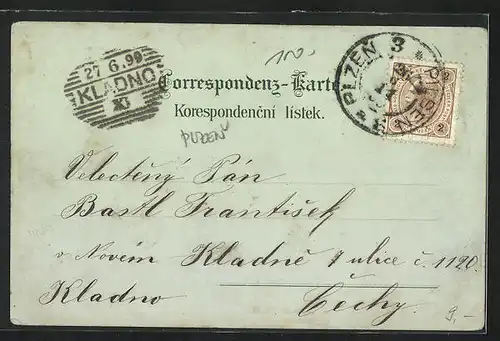 100.-
27. 6. 99
KLADNO
PLZEN 3
PILSEN
2
2
Correspondenz-Karte
Korespondenční lístek.
PLZEŇ
Velectěný Pán
Bastl František
v Novém Kladně ulice č. 1120.
Kladno
Čechy.
9.-